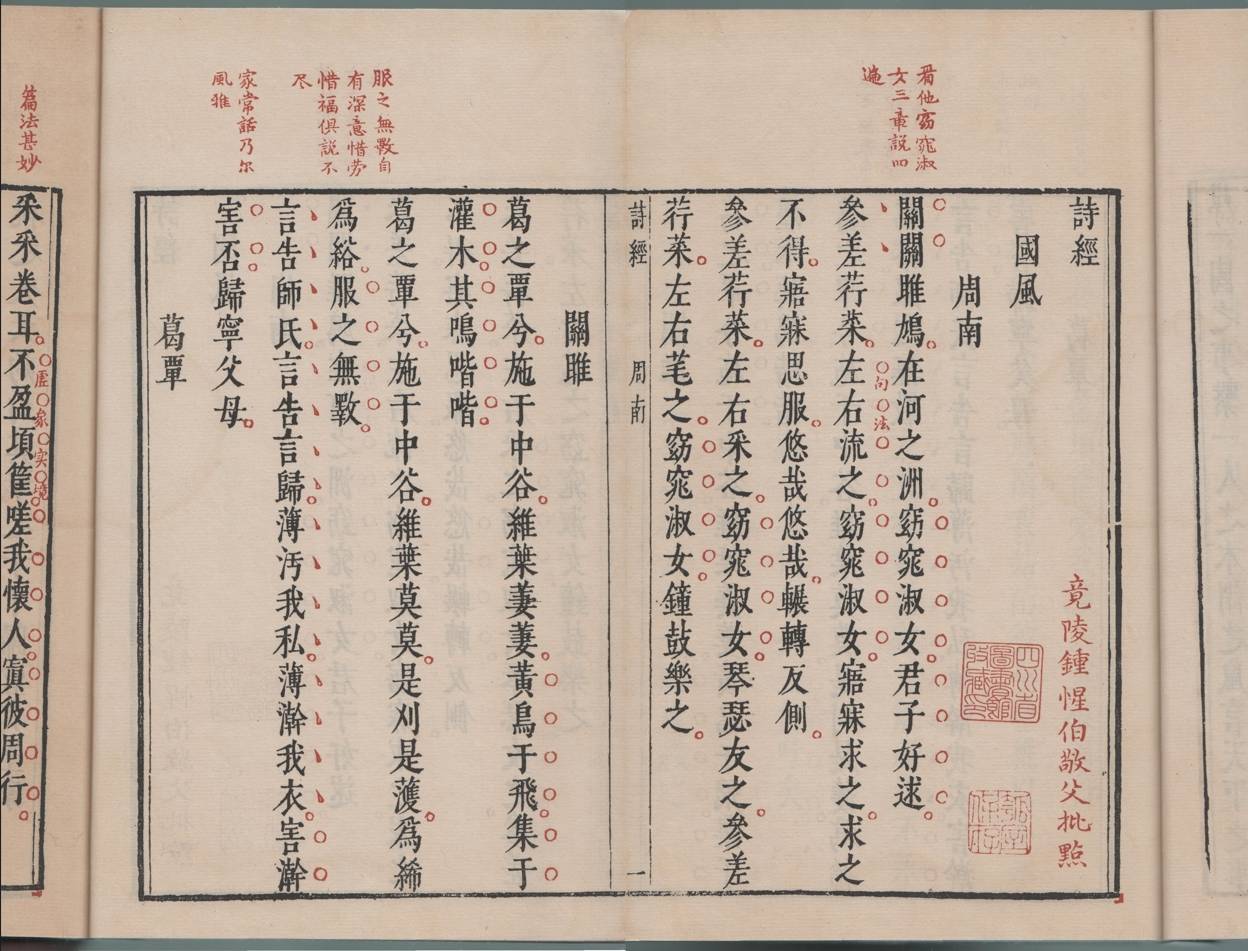 詩經
竟陵鍾惺伯敬父批點
國風
周南
看他窈窕淑
女三章說四
遍
關關雎鳩在河之洲窈窕淑女君子好逑
參差荇菜左右流之窈窕淑女寤寐求之求之
句法
不得寤寐思服悠哉悠哉輾轉反側
參差荇菜左右采之窈窕淑女琴瑟友之參差
荇菜左右芼之窈窕淑女鐘鼓樂之
詩經 周南 一
關雎
葛之覃兮施于中谷維葉萋萋黃鳥于飛集于
灌木其鳴喈喈
服之無斁自
有深意惜劳
惜福俱說不
尽
葛之覃兮施于中谷維葉莫莫是刈是濩爲絺
爲綌服之無斁
家常話乃尔
風雅
言告師氏言告言歸薄汚我私薄澣我衣害澣
害否歸寧父母
葛覃
篇法甚妙
采采卷耳不盈頃筐嗟我懷人寘彼周行
虛象实境